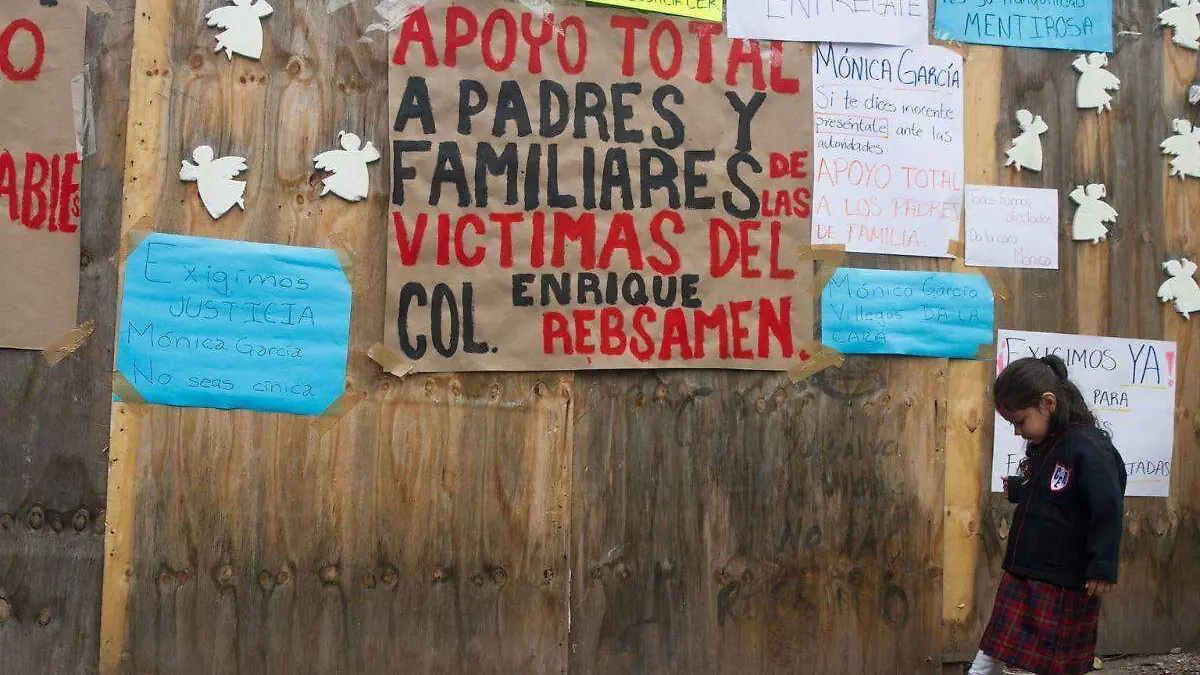 O
ABLES
APOYO TOTAL
A PADRES Y
FAMILIARES DE
LAS
VICTIMAS DEL
COL. ENRIQUE
REBSAMEN.
Exigimos
JUSTICIA
Mónica García
No seas cínica
ENTREGATE
MENTIROSA
MÓNICA GARCÍA
Si te dices inocente
preséntate ante las
autoridades
APOYO TOTAL
A LOS PADRES
DE FAMILIA.
Todos fuimos
afectados
Da la cara
Mónica
Mónica García
Villegas DA LA
CARA
EXIGIMOS YA!
PARA
CTADAS